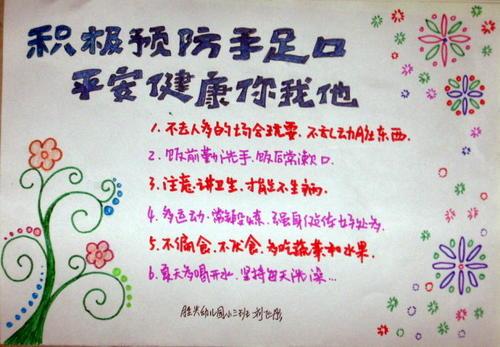 积极预防手足口
平安健康你我他
1. 不去人多的场合玩耍，不乱动脏东西.
2. 饭前勤洗手，饭后常漱口.
3. 注意讲卫生，才能不生病.
4. 多运动，常锻炼，强身健体
5. 不偏食、不厌食，多吃蔬菜和水果.
6. 夏天多喝开水，坚持每天洗澡...
胜兴幼儿园小三班 刘